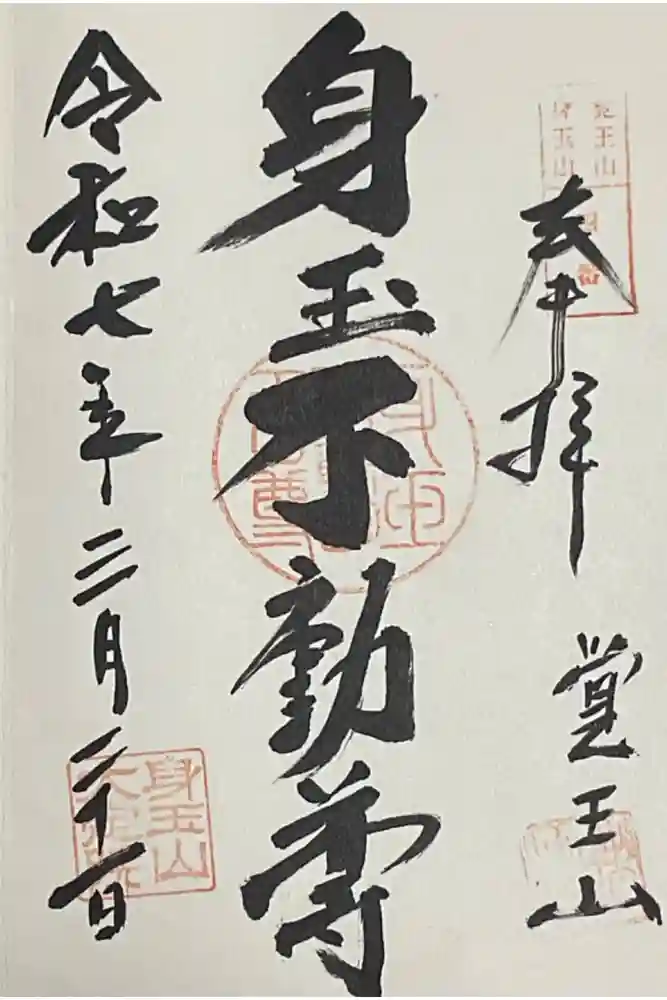 奉拝 覚王山
身玉不動尊
令和七年三月二十一日
覚王山
身玉山
身玉山